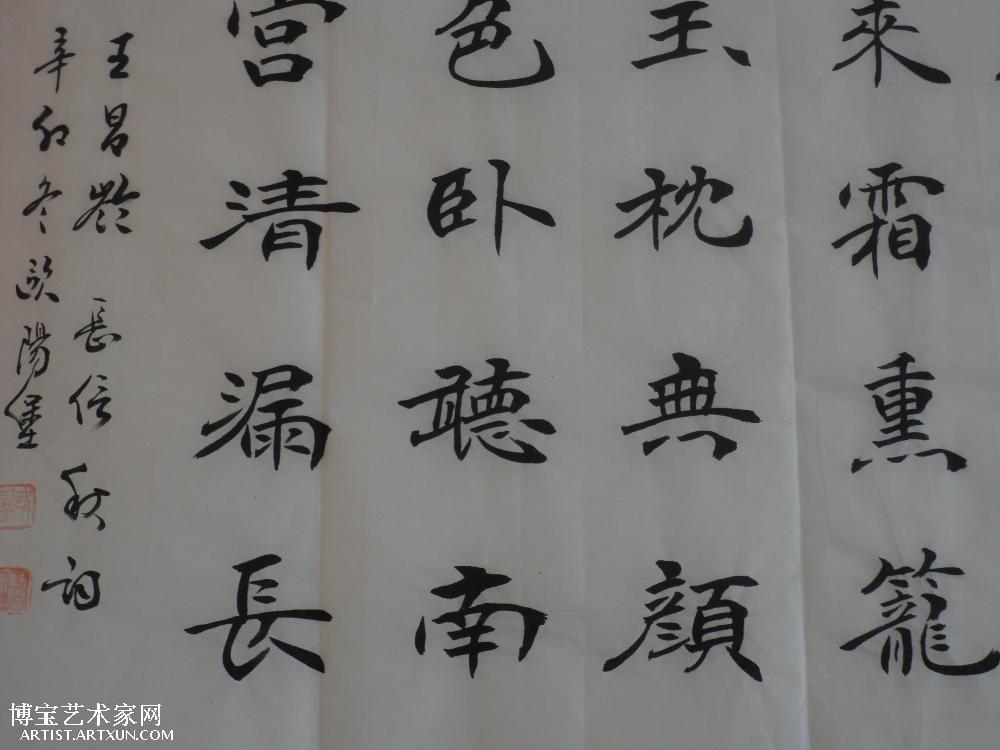 來霜熏籠
玉枕無顏
色卧聽南
宮清漏長
王昌齡 長信秋詞
辛卯冬 歐陽堡
博宝艺术家网
ARTIST.ARTXUN.COM